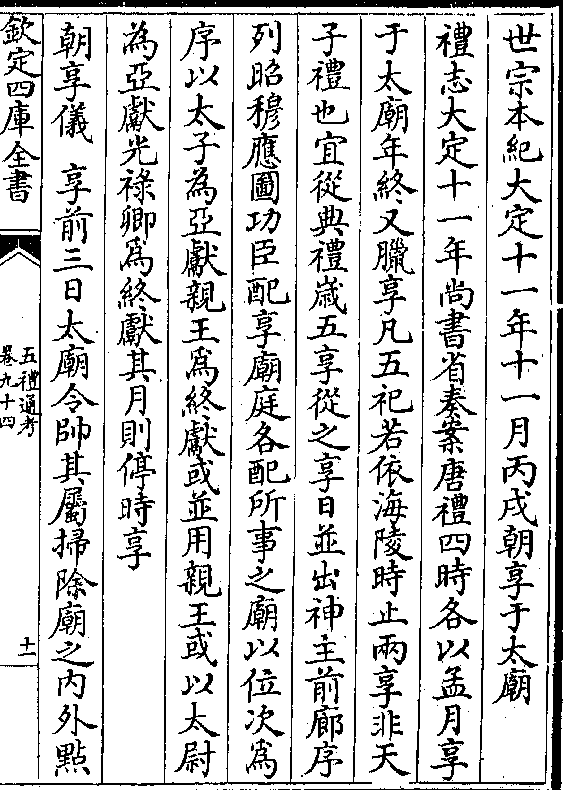 世宗本紀大定十一年十一月丙戌朝享于太廟
禮志大定十一年尚書省奏案唐禮四時各以孟月享
于太廟年終又臘享凡五祀若依海陵時止兩享非天
子禮也宜從典禮歲五享從之享日並出神主前廊序
列昭穆應圖功臣配享廟庭各配所事之廟以位次為
序以太子為亞獻親王為終獻或並用親王或以太尉
為亞獻光祿卿為終獻其月則停時享
朝享儀 享前三日太廟令帥其屬掃除廟之内外點
欽定四庫全書
五禮通考
卷九十四
十一